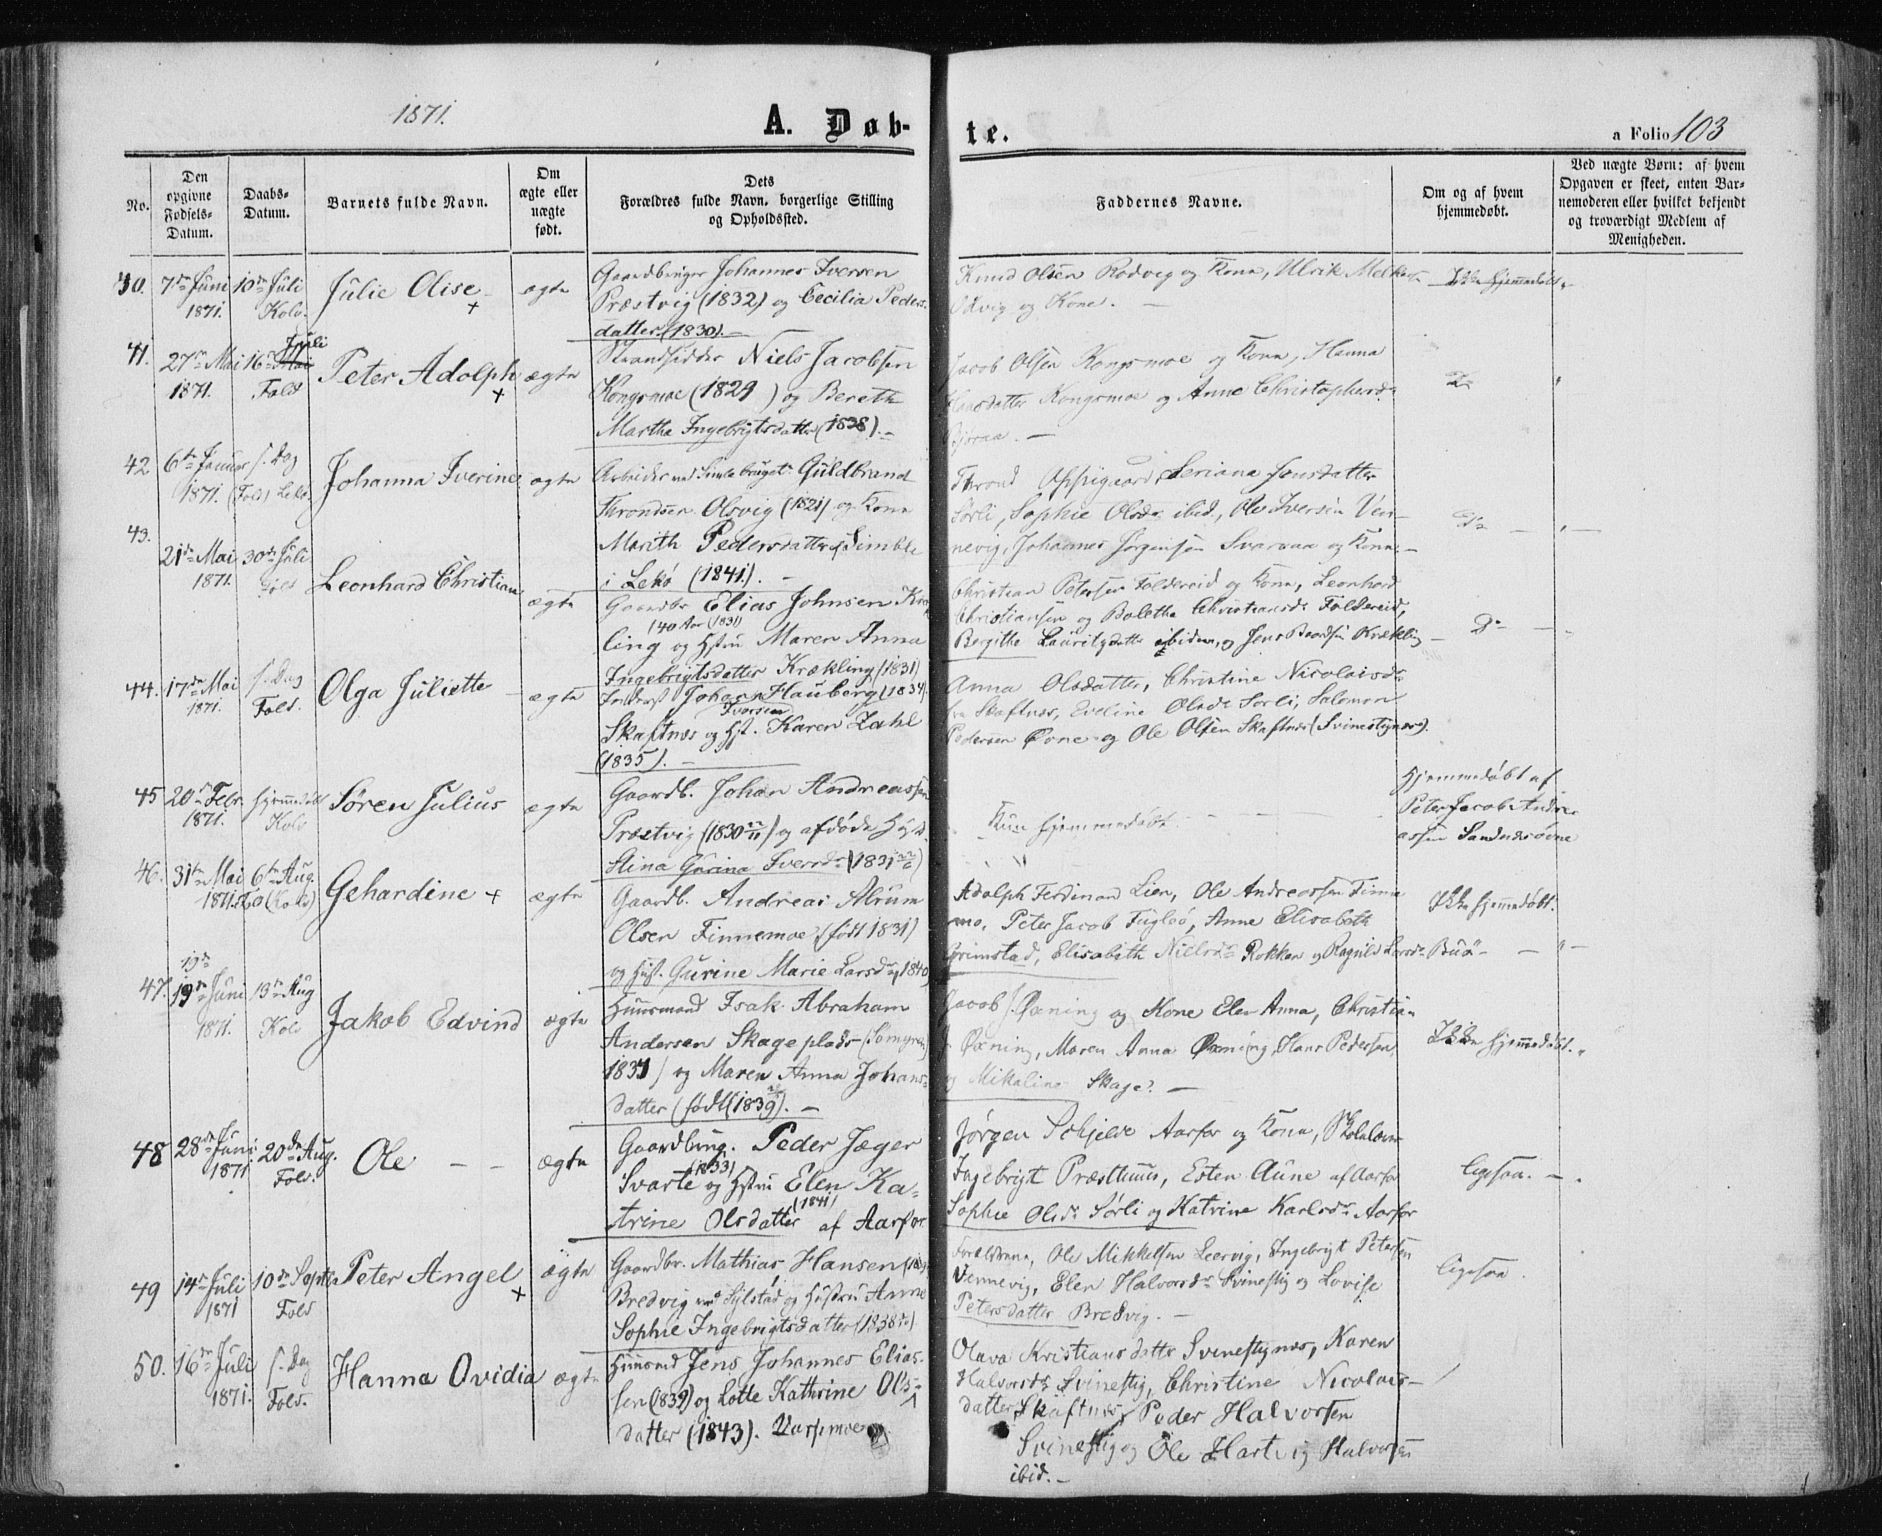 1871.
A. Døb-
te.
a Folio 103
No.
Den opgivne Fødsels-Datum.
Daabs-Datum.
Barnets fulde Navn.
Om ægte eller uægte født.
Dets Forældres fulde Navn, borgerlige Stilling og Opholdssted.
Faddernes Navne.
Om og af hvem hjemmedøbt.
Ved uægte Børn: af hvem Opgaven er skeet, enten Barnemoderen eller hvilket bekjendt og troværdigt Medlem af Menigheden.
40. 7de Juni 1871. 10de Juli Kolv. Julie Olise + ægte
Gaardbruger Johannes Iversen
Præstvig (1832) og Cecilia Peders-
datter (1830). —
Knud Olsen Rodvig og Kone, Ulrik
Odvig og Kone. —
Ikke hjemmedøbt.
41. 27de Mai 1871. 16de Juli Fold Peter Adolph + ægte
Strandsidder Niels Jacobsen
Kongsmoe (1829) og Bereth
Martha Ingebrigtsdatter (1838). —
Jacob Olsen Kongsmoe og Kone, Hanna
Hansdatter Kongsmoe og Anne Christophersd.
Do
42 6te Januar 1871. s. Dag (Fold) Lekø. Johanna Iverine ægte
Arbeider ved Guldbrand
Throndsen Olsvig (1821) og Kone
Marith Pedersdatter Simle
i Lekø (1841). —
Thrond Oppigaard, Seriana Jensdatter
Sørli, Sophie Olsdr ibid., Ole Iversen Ven-
nevig, Johannes Jørgensen Svaraa og Kone. —
Do —
43. 21de Mai 1871. 30de Juli Fold Leonhard Christian ægte
Gaardbr. Elias Johnsen Kræk-
(40 Aar (1831)
ling og Hstru Maren Anna
Ingebrigtsdatter Krækling (1831)
Christian Petersen Foldereid og Kone, Leonhard
Christiansen og Boletha Christiansd. Foldereid,
Bergitha Lauritzdatter ibidem, og Jens Krækling
Do —
44. 17de Mai 1871. s. Dag Fold. Olga Juliette — ægte
Johan Hauberg (1834)
Iversen
Skaftnæs og Hst. Karen Zahl
(1835). —
Anna Olsdatter, Christine Nicolaisdr
fra Skaftnæs, Eveline Olsdr Sørli, Salomon
Pedersen Øvne og Ole Olsen Skaftnæs (Svinestignæs).
45 20de Febr. 1871. hjemmedøbt Kolv Søren Julius ægte
Gaardb. Johan Andreassen
Præstvig (1830 22/11) og afdøde Hst.
Stina Gurina Iversdr (1831)
Kun hjemmedøbt
Hjemmedøbt af
Peter Jacob Andre-
assen Sandnesøvne
46. 31te Mai 1871. 6te Aug. (Kolv) Gehardine + ægte
Gaardb. Andreas Abrum
Olsen Finnemoe (født 1831)
og Hust. Gurine Marie Larsd. 1840
Adolph Ferdinan Lien, Ole Andreassen Finne-
mo, Peter Jacob Fugløe, Anne Elisabeth
Grimstad, Elisabeth Nielsdr Rokken og Ragnild Larsdr Buø —
Ikke hjemmedøbt.
47. 19de Juni 1871. 13de Aug Kolv Jakob Edvind ægte
19de
Huusmand Isak Abraham
Andersen Skage plads (Somyren)
1831) og Maren Anna Johans-
datter (født 1839). —
Jacob J. Øxning og Kone Elen Anna, Christian
Øxning, Maren Anna Øxning, Hans Pedersen,
og Mikaline Skage. —
Ikke hjemmedøbt.
48 28de Juni 1871 20de Aug. Fold. Ole — — ægte
Gaardbrug. Peder Jæger
(1833)
Svarte og Hstru Elen Ka-
(1841)
trine Olsdatter af Aarfor
Jørgen Schjelve Aarfor og Kone, Skolelærer
Ingebrigt Præsthuus, Esten Aune af Aarfor
Sophie Olsdr Sørli og Katrine Karlsdr Aarfor
ligesaa. —
49 14de Juli 1871 10de Septbr Fold Peter Angel + ægte
Gaardbr. Mathias Hansen
Bredvig ved Sylstad og Hustru Anne
Sophie Ingebrigtsdatter (1838)
Forældrene, Ole Mikkelsen Leervig, Ingebrigt Petersen
Vennevig, Elen Halvorsdr Svinestig og Lovise
Petersdatter Bredvig. —
ligesaa.
50. 16de Juli 1871. s. Dag Fold. Hanna Ovidia ægte
Huusmd Jens Johannes Elias-
sen (1839) og Lotte Kathrine Ols-
datter (1843).
Olava Kristiansdatter Svinestignæs, Karen
Halvorsdr Svinestig, Christine Nicolais-
datter Skaftnæs, Peder Halvorsen
Svinestig og Ole Hartvig Halvorsen
ibid. —